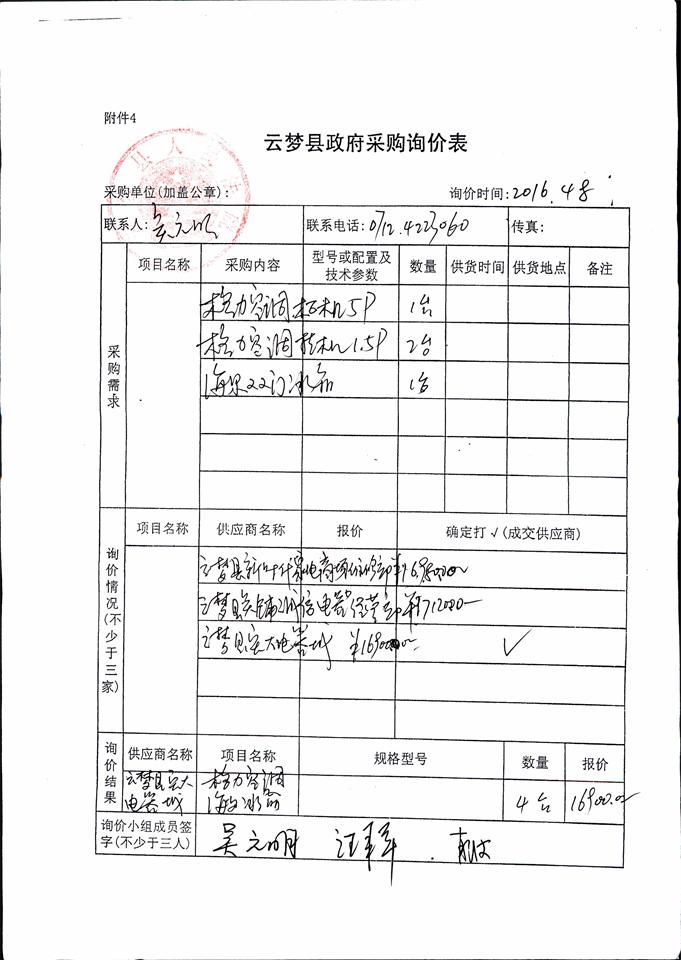 附件4
云梦县政府采购询价表
采购单位(加盖公章):
询价时间:2016.4.8
联系人:吴元明 联系电话:0712.4223060 传真:
采购需求
项目名称 采购内容 型号或配置及技术参数 数量 供货时间 供货地点 备注
格力空调 柜机5P 1台
格力空调 挂机1.5P 2台
海尔双门冰箱 1台
询价情况(不少于三家)
项目名称 供应商名称 报价 确定打√(成交供应商)
云梦县
云梦县 电器经营部 ¥17120.00
云梦县宏大电器城 ¥16900.00 √
询价结果
供应商名称 项目名称 规格型号 数量 报价
云梦县宏大电器城 格力空调 海尔冰箱 4台 16900.00
询价小组成员签字(不少于三人) 吴元明